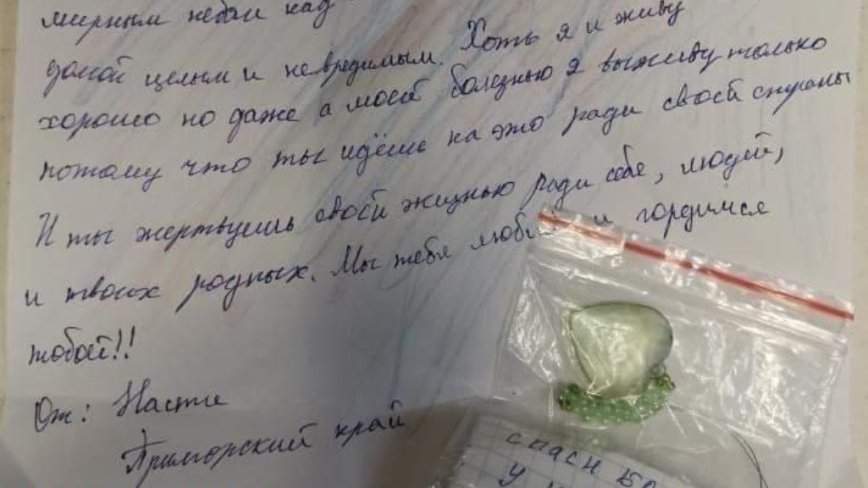 мирным небом над
домой целым и невредимым. Хоть я и живу
хорошо но даже а моей болезнью я выживу только
потому что ты идёшь на это ради своей страны
И ты жертвуешь своей жизнью ради себя, людей,
и твоих родных. Мы тебя любим и гордимся
тобой!!
От: Насти
Приморский край
спаси
у